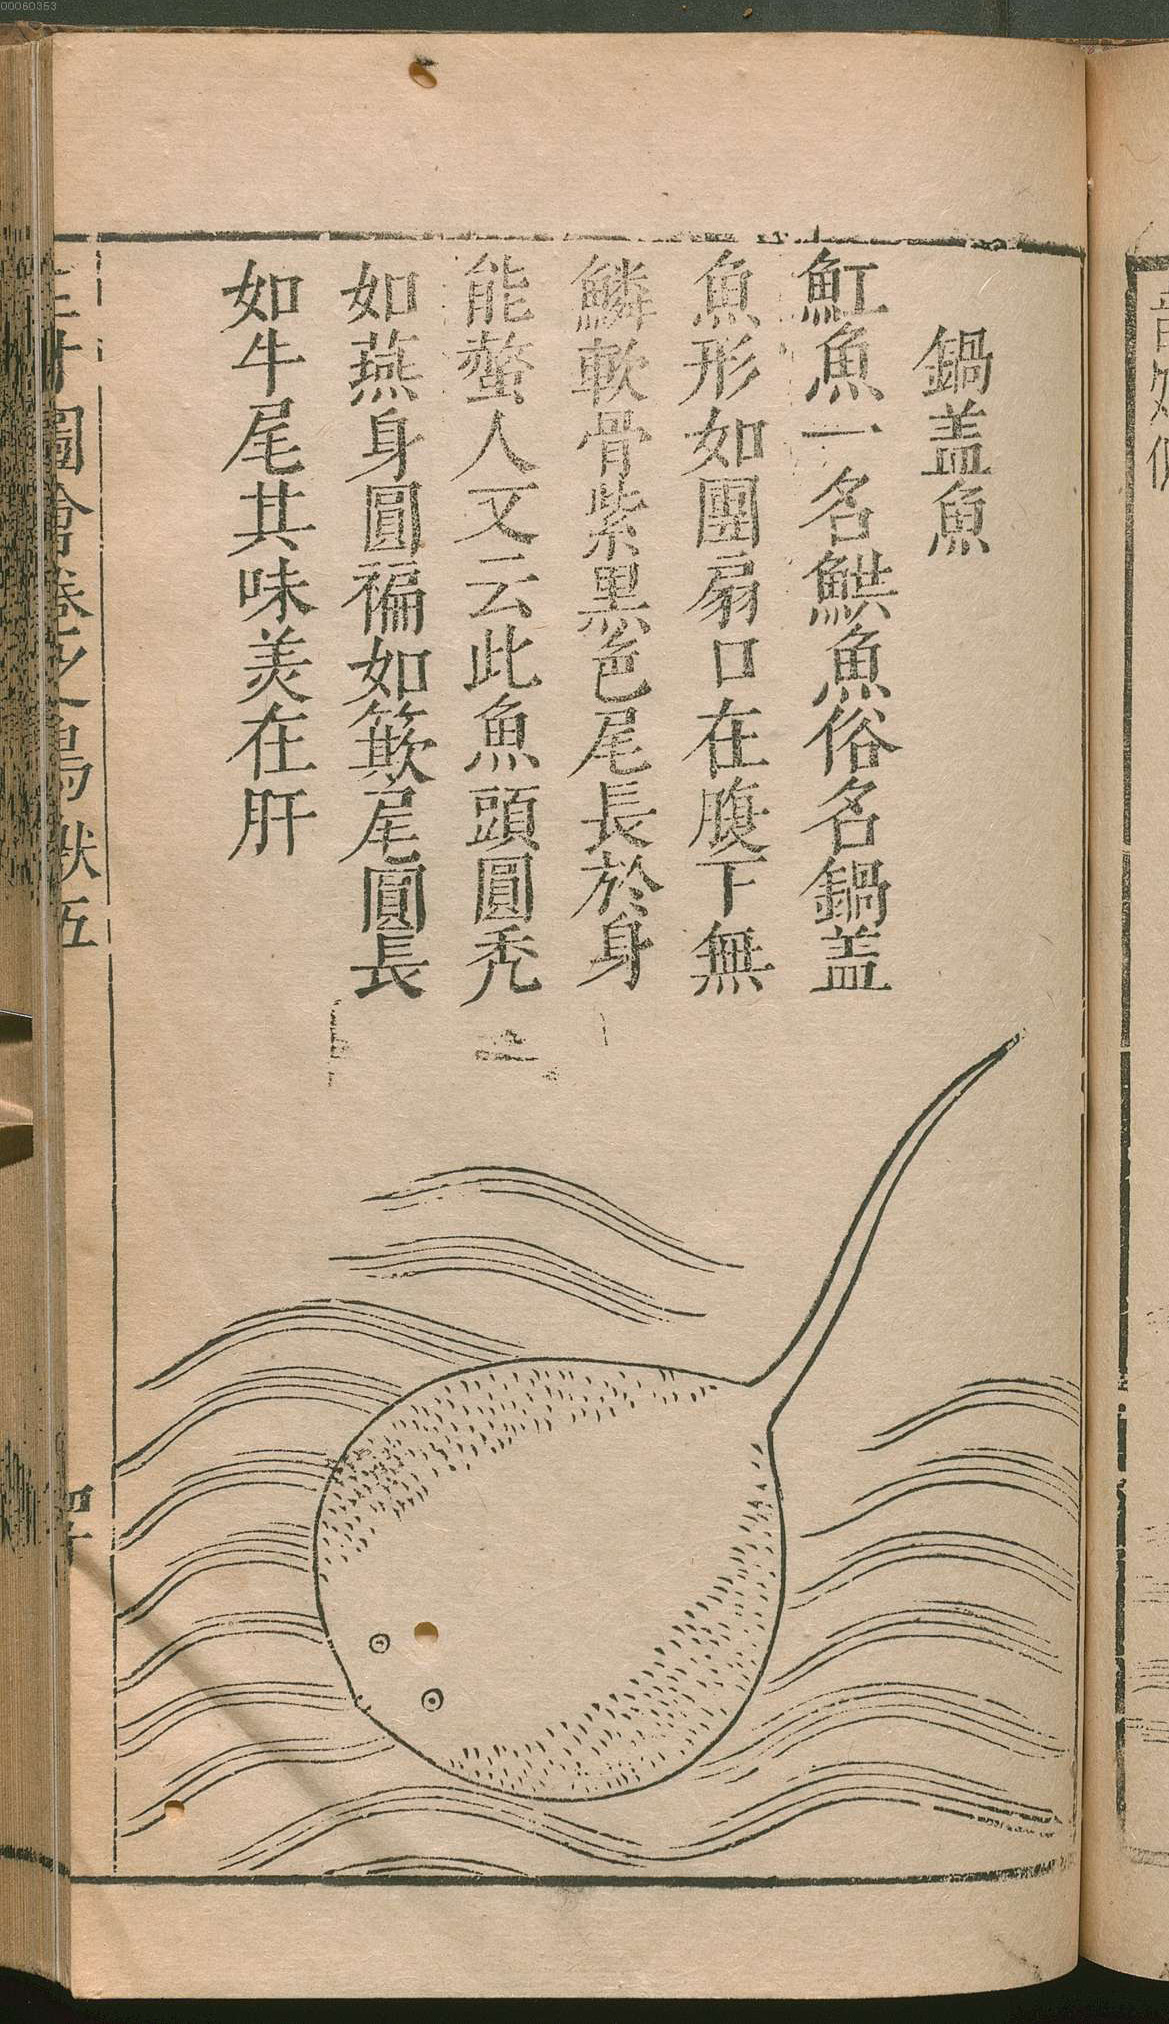 00060353
鍋盖魚
魟魚一名鯕魚俗名鍋盖
魚形如團扇口在腹下無
鱗軟骨紫黒色尾長於身
能螫人又云此魚頭圓秃
如燕身圓褊如簸尾圓長
如牛尾其味美在肝
圖會卷之鳥獸五